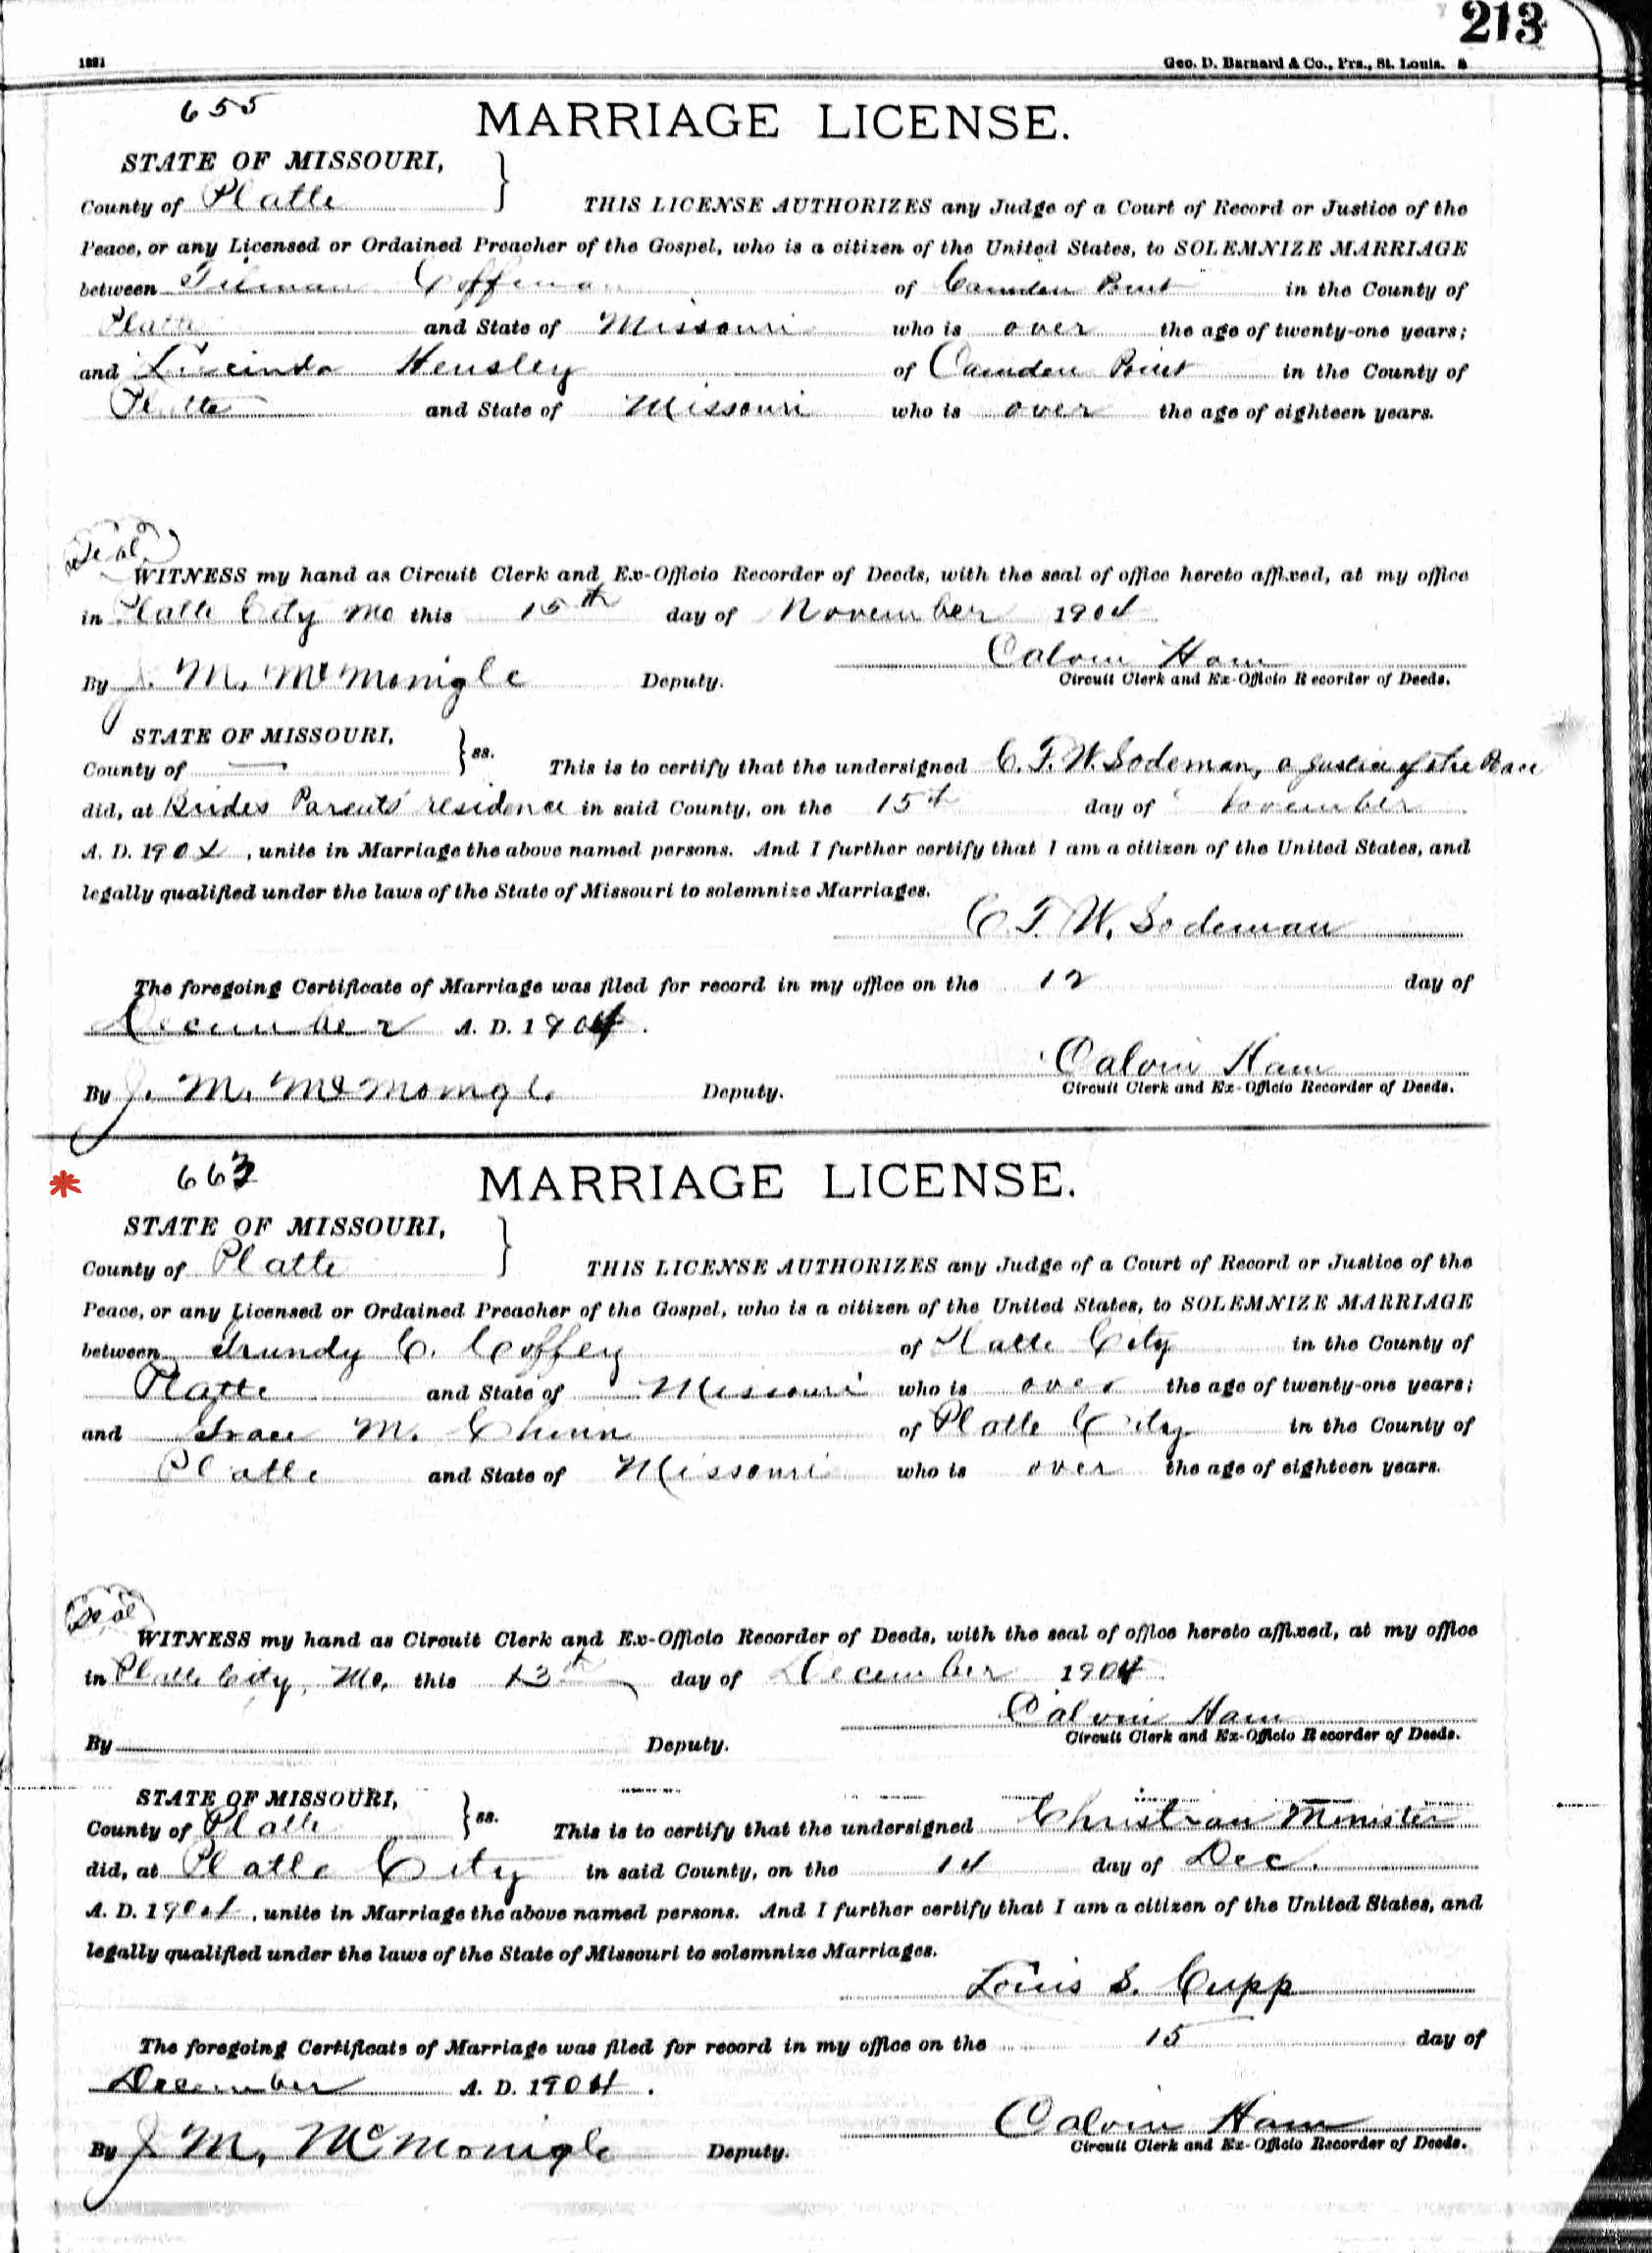 213
1891 Geo. D. Barnard & Co., Prs., St. Louis.
655
MARRIAGE LICENSE.
STATE OF MISSOURI,
County of Platte } THIS LICENSE AUTHORIZES any Judge of a Court of Record or Justice of the
Peace, or any Licensed or Ordained Preacher of the Gospel, who is a citizen of the United States, to SOLEMNIZE MARRIAGE
between Tilman Coffman of Camden Point in the County of
Platte and State of Missouri who is over the age of twenty-one years;
and Lucinda Hensley of Camden Point in the County of
Platte and State of Missouri who is over the age of eighteen years.
Seal
WITNESS my hand as Circuit Clerk and Ex-Officio Recorder of Deeds, with the seal of office hereto affixed, at my office
in Platte City Mo this 15th day of November 1904
Calvin Ham
By J. M. McMonigle Deputy. Circuit Clerk and Ex-Officio Recorder of Deeds.
STATE OF MISSOURI,
County of — } ss. This is to certify that the undersigned C. F. W. Sodeman, a Justice of the Peace
did, at Brides Parents' residence in said County, on the 15th day of November
A. D. 1904, unite in Marriage the above named persons. And I further certify that I am a citizen of the United States, and
legally qualified under the laws of the State of Missouri to solemnize Marriages.
C. F. W. Sodeman
The foregoing Certificate of Marriage was filed for record in my office on the 12 day of
December A. D. 1904.
Calvin Ham
By J. M. McMonigle Deputy. Circuit Clerk and Ex-Officio Recorder of Deeds.
* 663
MARRIAGE LICENSE.
STATE OF MISSOURI,
County of Platte } THIS LICENSE AUTHORIZES any Judge of a Court of Record or Justice of the
Peace, or any Licensed or Ordained Preacher of the Gospel, who is a citizen of the United States, to SOLEMNIZE MARRIAGE
between Grundy C. Coffey of Platte City in the County of
Platte and State of Missouri who is over the age of twenty-one years;
and Grace M. Chinn of Platte City in the County of
Platte and State of Missouri who is over the age of eighteen years.
Seal
WITNESS my hand as Circuit Clerk and Ex-Officio Recorder of Deeds, with the seal of office hereto affixed, at my office
in Platte City, Mo, this 13th day of December 1904
Calvin Ham
By Deputy. Circuit Clerk and Ex-Officio Recorder of Deeds.
STATE OF MISSOURI,
County of Platte } ss. This is to certify that the undersigned Christian Minister
did, at Platte City in said County, on the 14 day of Dec.
A. D. 1904, unite in Marriage the above named persons. And I further certify that I am a citizen of the United States, and
legally qualified under the laws of the State of Missouri to solemnize Marriages.
Louis S. Cupp
The foregoing Certificate of Marriage was filed for record in my office on the 15 day of
December A. D. 1904.
Calvin Ham
By J. M. McMonigle Deputy. Circuit Clerk and Ex-Officio Recorder of Deeds.